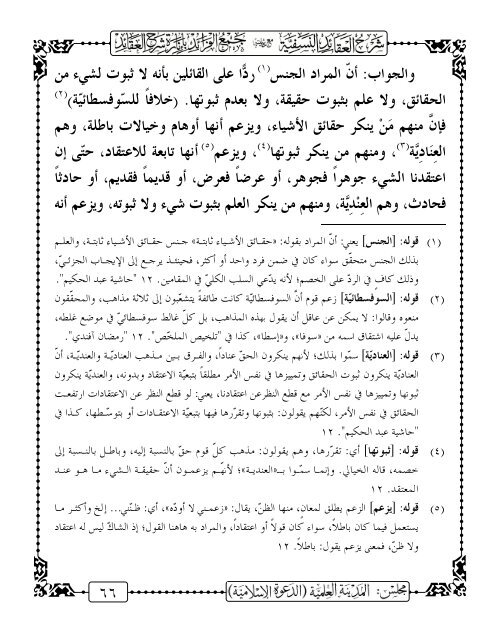 شرح العقائد النسفية مع جمع الفرائد بإنارة شرح العقائد
والجواب: أنّ المراد الجنس(١) ردًّا على القائلين بأنه لا ثبوت لشيء من
الحقائق، ولا علم بثبوت حقيقة، ولا بعدم ثبوتها. (خلافاً للسّوفسطائيّة)(٢)
فإنَّ منهم مَنْ ينكر حقائق الأشياء، ويزعم أنها أوهام وخيالات باطلة، وهم
العِناديَّة(٣)، ومنهم من ينكر ثبوتها(٤)، ويزعم(٥) أنها تابعة للاعتقاد، حتّى إن
اعتقدنا الشيء جوهراً فجوهر، أو عرضاً فعرض، أو قديماً فقديم، أو حادثاً
فحادث، وهم العِنْديَّة، ومنهم من ينكر العلم بثبوت شيء ولا ثبوته، ويزعم أنه
(١) قوله: [الجنس] يعني: أنّ المراد بقوله: «حقائق الأشياء ثابتة» جنس حقائق الأشياء ثابتة، والعلم
بذلك الجنس متحقّق سواء كان في ضمن فرد واحد أو أكثر، فحينئذ يرجع إلى الإيجاب الجزئيّ،
وذلك كافٍ في الردّ على الخصم؛ لأنه يدّعي السلب الكليّ في المقامين. ١٢ "حاشية عبد الحكيم".
(٢) قوله: [السوفسطائيّة] زعم قوم أنّ السوفسطائيّة كانت طائفة يتشعّبون إلى ثلاثة مذاهب، والمحقّقون
منعوه وقالوا: لا يمكن عن عاقل أن يقول بهذه المذاهب، بل كلّ غالط سوفسطائيّ في موضع غلطه،
يدلّ عليه اشتقاق اسمه من «سوفا»، و«إسطا»، كذا في "تلخيص الملخّص". ١٢ "رمضان آفندي".
(٣) قوله: [العناديّة] سمّوا بذلك؛ لأنهم ينكرون الحقّ عناداً، والفرق بين مذهب العناديّة والعنديّة، أنّ
العناديّة ينكرون ثبوت الحقائق وتمييزها في نفس الأمر مطلقاً بتبعيّة الاعتقاد وبدونه، والعنديّة ينكرون
ثبوتها وتمييزها في نفس الأمر مع قطع النظر عن اعتقادنا، يعني: لو قطع النظر عن الاعتقادات ارتفعت
الحقائق في نفس الأمر، لكنّهم يقولون: بثبوتها وتقرّرها فيها بتبعيّة الاعتقادات أو بتوسّطها، كذا في
"حاشية عبد الحكيم". ١٢
(٤) قوله: [ثبوتها] أي: تقرّرها، وهم يقولون: مذهب كلّ قوم حقّ بالنسبة إليه، وباطل بالنسبة إلى
خصمه، قاله الخيالي. وإنما سمّوا بـ«العندية»؛ لأنهم يزعمون أنّ حقيقة الشيء ما هو عند
المعتقد. ١٢
(٥) قوله: [يزعم] الزعم يطلق لمعانٍ، منها الظنّ، يقال: «زعمني لا أودّه»، أي: ظنّني.. إلخ وأكثر ما
يستعمل فيما كان باطلاً، سواء كان قولاً أو اعتقاداً، والمراد به هاهنا القول؛ إذ الشاكّ ليس له اعتقاد
ولا ظنّ، فمعنى يزعم يقول: باطلاً. ١٢
مجلس: المدينة العلمية (الدعوة الإسلامية)
٦٦